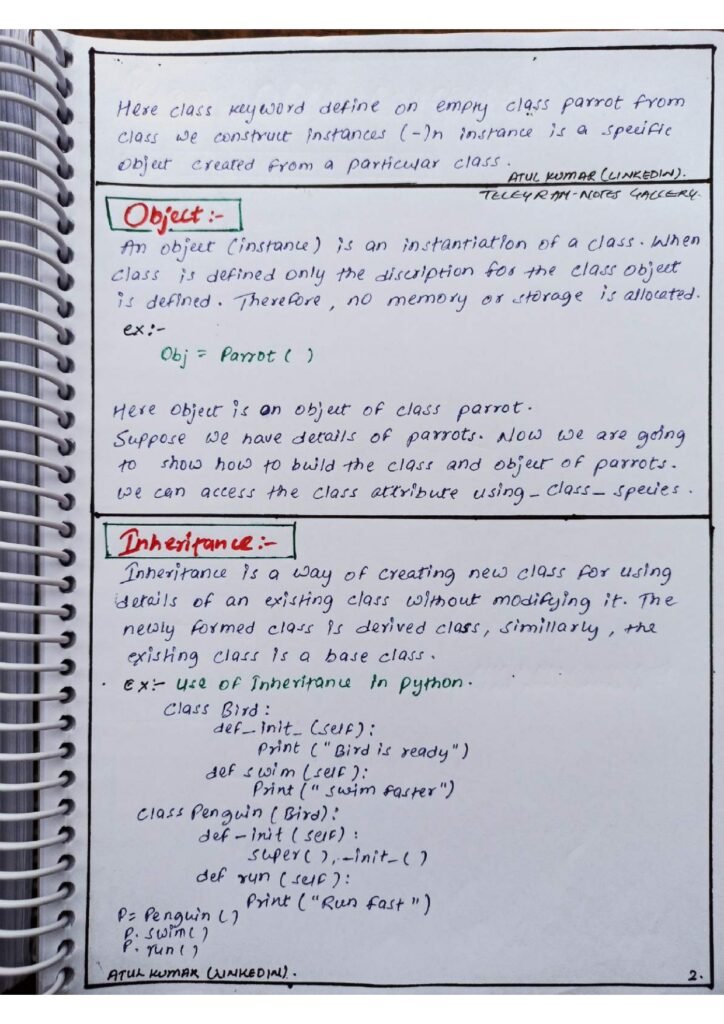 Here class keyword define on empty class parrot from
class we construct instances (-)n instance is a specific
object created from a particular class.
ATUL KUMAR (LINKEDIN).
TELEGRAM-NOTES GALLERY.
Object:-
An object (instance) is an instantiation of a class. When
class is defined only the discription for the class object
is defined. Therefore, no memory or storage is allocated.
ex:-
Obj = Parrot ( )
Here object is an object of class parrot.
Suppose we have details of parrots. Now we are going
to show how to build the class and object of parrots.
we can access the class attribute using_class_species.
Inheritance:-
Inheritance is a way of creating new class for using
details of an existing class without modifying it. The
newly formed class is derived class, simillarly, the
existing class is a base class.
Ex:- use of Inheritance in python.
class Bird:
def_init_(self):
Print ("Bird is ready")
def swim (self):
Print (" swim faster")
class Penguin (Bird):
def -init (self):
super(), -init_()
def run (self):
Print ("Run fast")
P= Penguin ()
P. swim()
P. run()
ATUL KUMAR (LINKEDIN).
2.